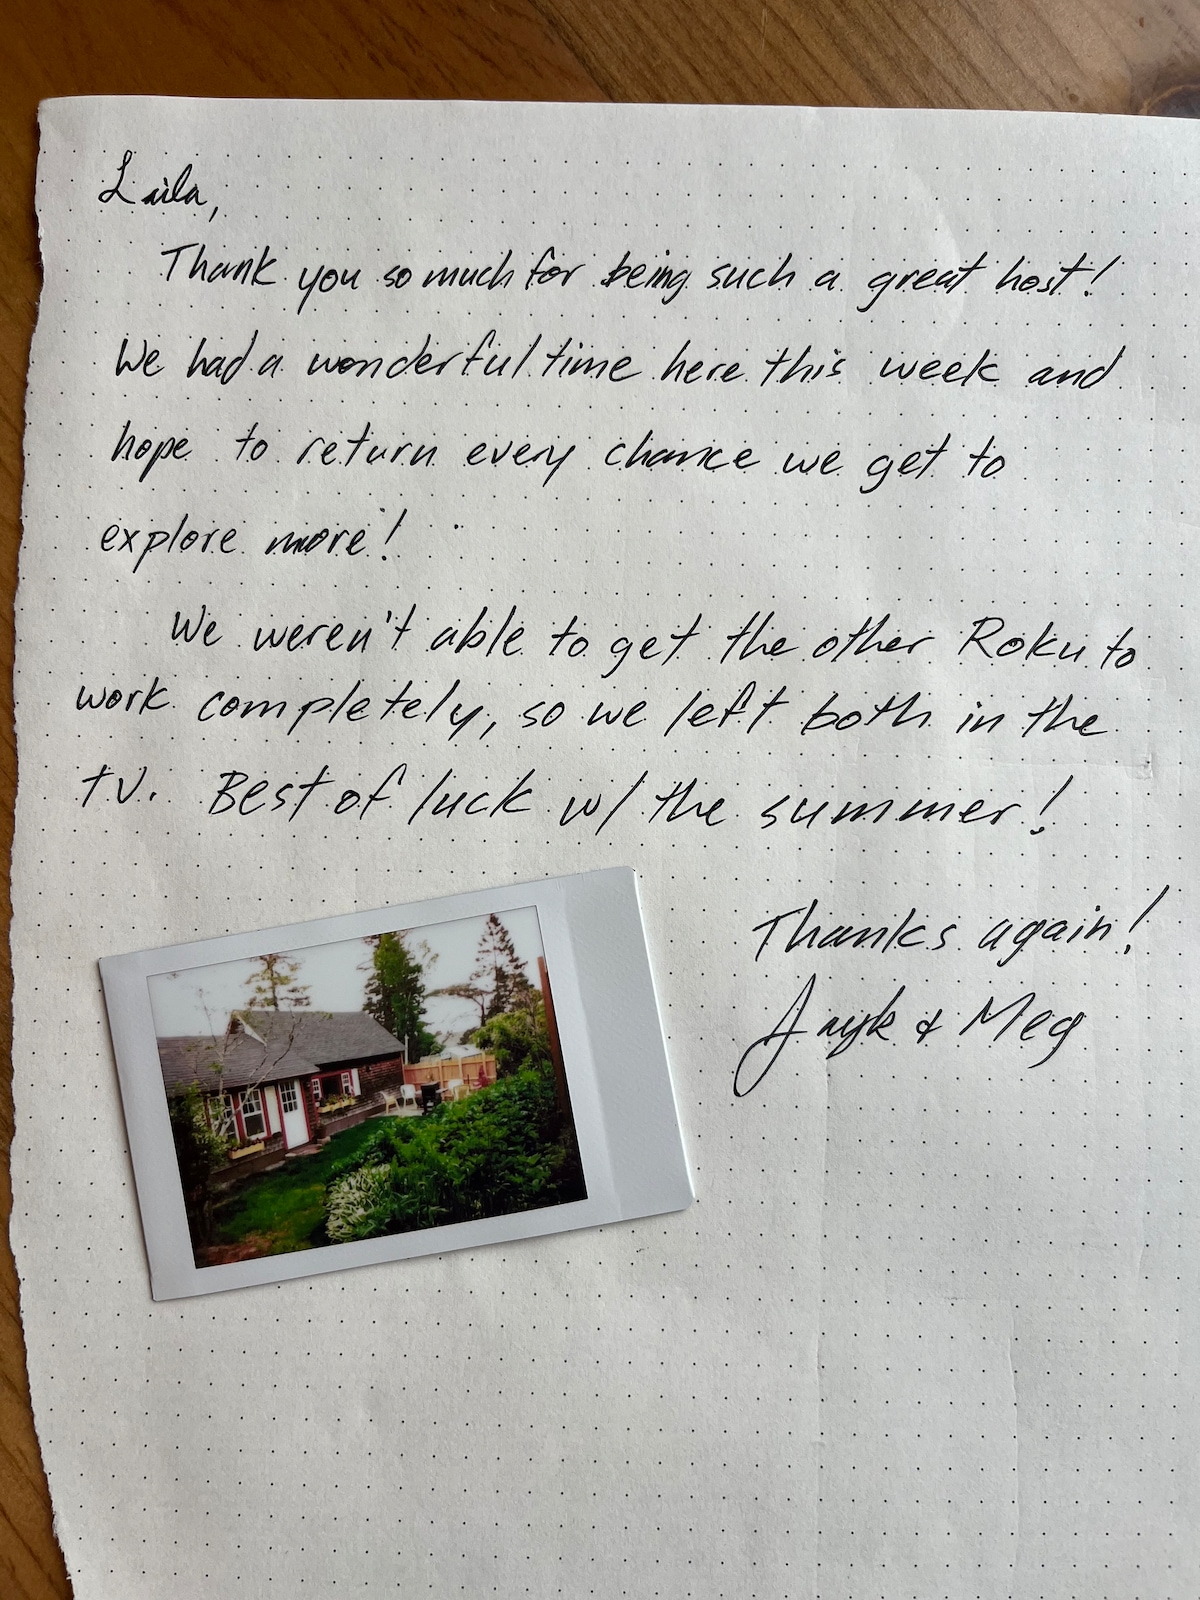 Laila,
Thank you so much for being such a great host!
We had a wonderful time here this week and
hope to return every chance we get to
explore more!
We weren't able to get the other Roku to
work completely, so we left both in the
TV. Best of luck w/ the summer!
Thanks again!
Jayk & Meg